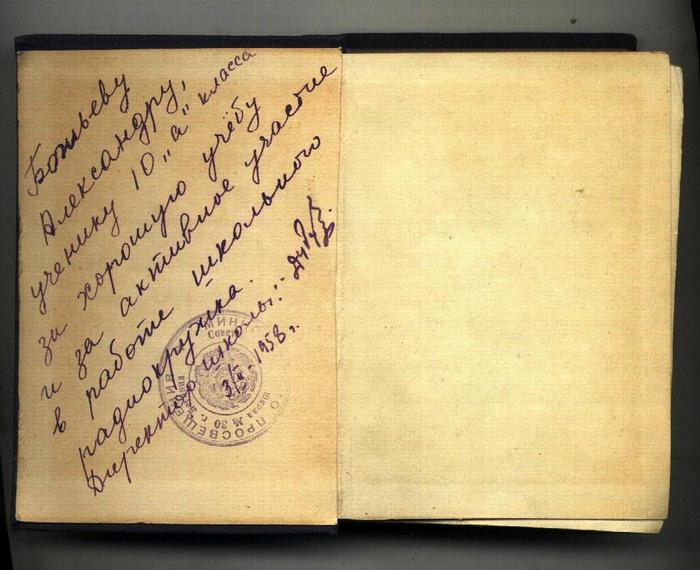 Ботьеву
Александру,
ученику 10 „а" класса
за хорошую учёбу
и за активное участие
в работе школьного
радиокружка.
Директор школы:-
1958 г.
ПРОСВЕЩЕНИЯ
школа № 30 г.